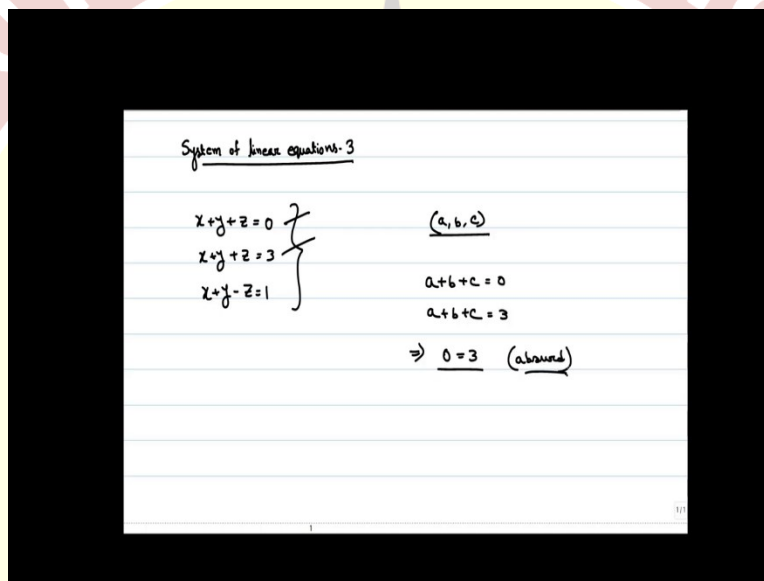 System of linear equations-3
x+y+z=0
x+y+z=3
x+y-z=1
(a,b,c)
a+b+c=0
a+b+c=3
⇒ 0=3 (absurd)
1/1
1